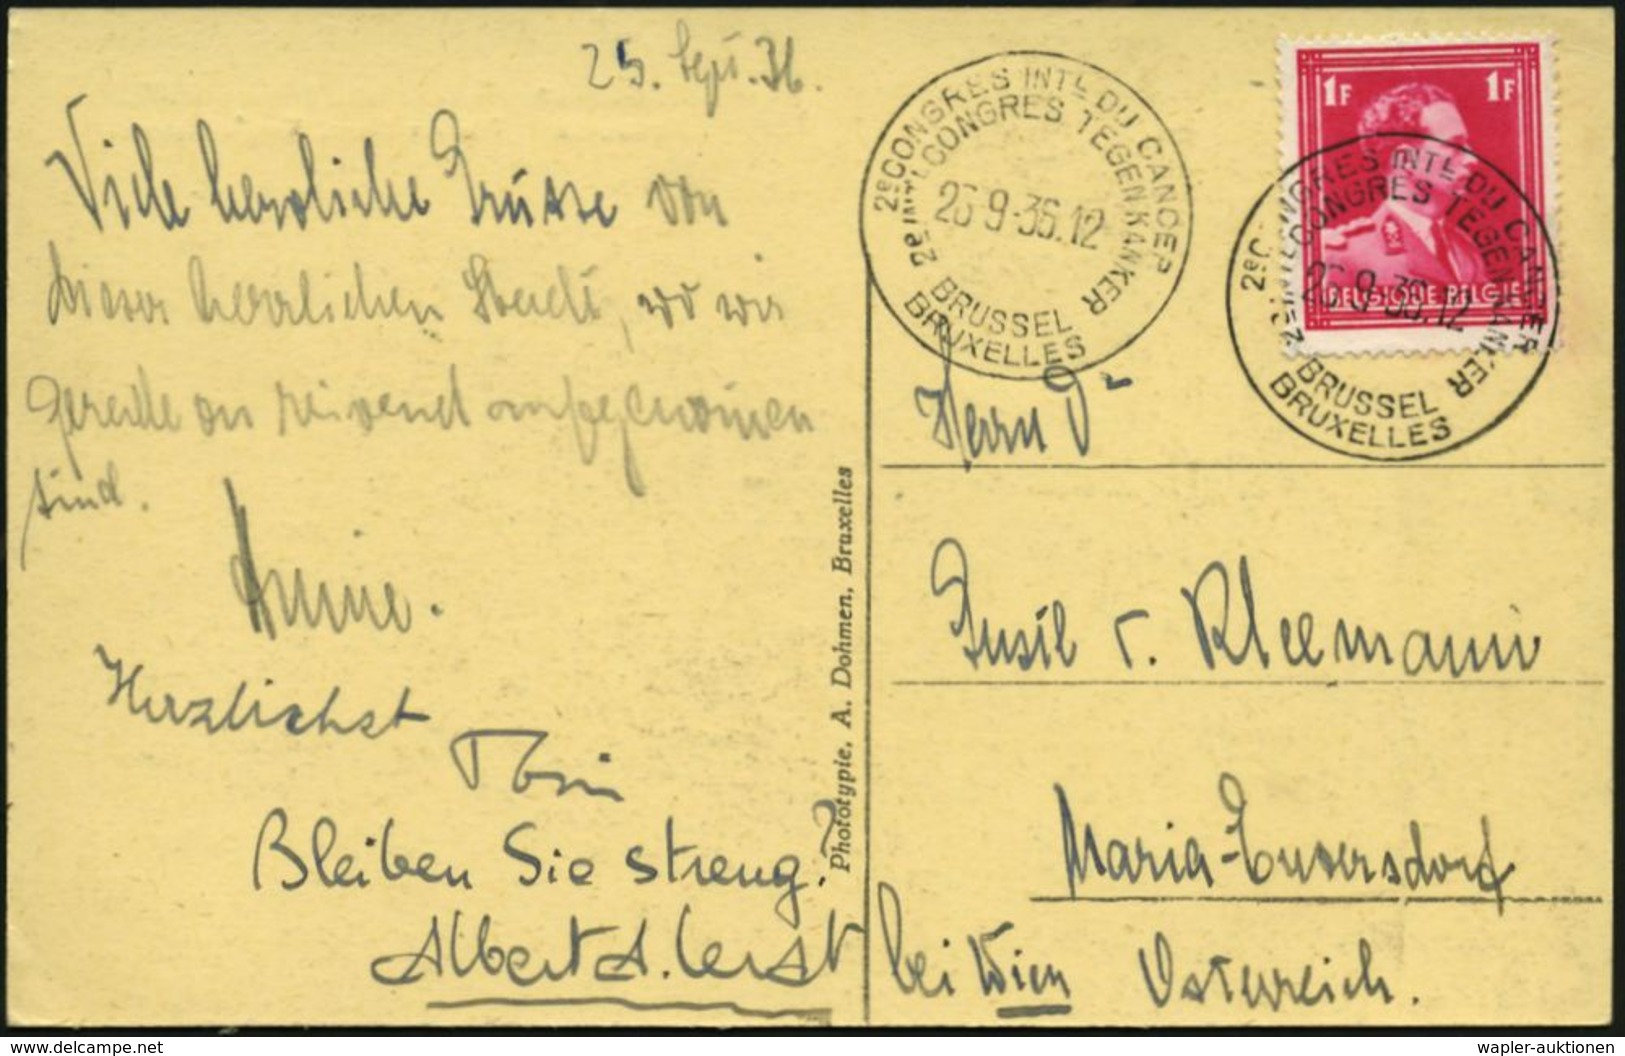 25. Sept. 36.
Viele herzliche Grüsse von
dieser herrlichen Stadt, wo wir
gerade an reizend aufgenommen
sind.
Herzlichst
Bleiben Sie streng?
Albert A.
Phototypie, A. Dohmen, Bruxelles
2e CONGRES INTL DU CANCER
2e INTL CONGRES TEGEN KANKER
26-9-36.12
BRUSSEL
BRUXELLES
1F 1F
BELGIQUE BELGIE
2e CONGRES INTL DU CANCER
2e INTL CONGRES TEGEN KANKER
26-9-36.12
BRUSSEL
BRUXELLES
Herrn Dr
v. Kleemann
Maria-Enzersdorf
bei Wien Österreich.
www.delcampe.net
wapler-auktionen